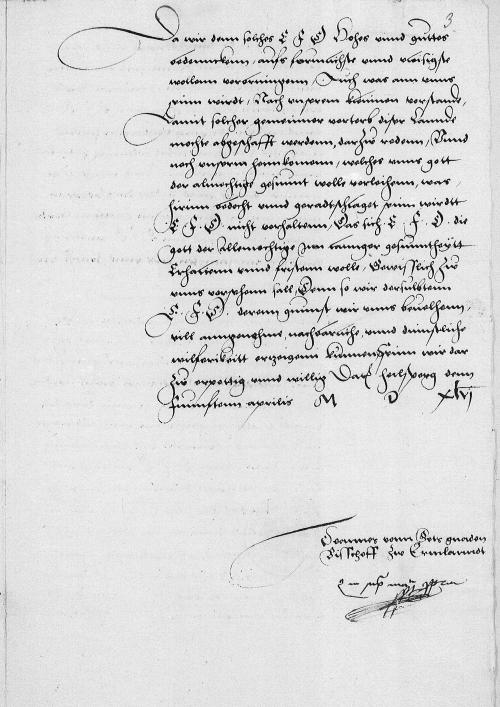 3
Da wir dem solches E F G hohes unnd guttes
bedennckenn, auffs
wollenn vorbringenn, Auch was ann unns
seinn wirdt, Nach unserm kunnen vorstande,
Damit solcher gemeinner vorterb diser Lannde
mochte abgeschafft werdenn, dartzw redenn, Unnd
noch unserm heimkomenn, welches unns gott
der almechtige gesunnt wolle vorleihenn, was
hirinn bedocht unnd geradtschlaget sein wirdtt
E F G nicht vorhaltenn, Das sich E. F. G. die
gott der Allmechtige inn lannger gesunntheytt
Erhaltenn unnd fristenn wolle, Gewisslich zw
unns vorsehenn sall, Denn so wir derselbtenn
E. F. G. derenn gunnst wir unns bevelhenn,
vill anngenehme, nachbarliche, unnd dinnstliche
wilfarikeitt ertzeigenn kunnen, Seinn wir dar
zw erpottig unnd willig Datum heilsperg denn
funnfftenn aprilis M D XLVI
Joannes vonn Gots gnaden
Bisschoff zw Ermlanndt